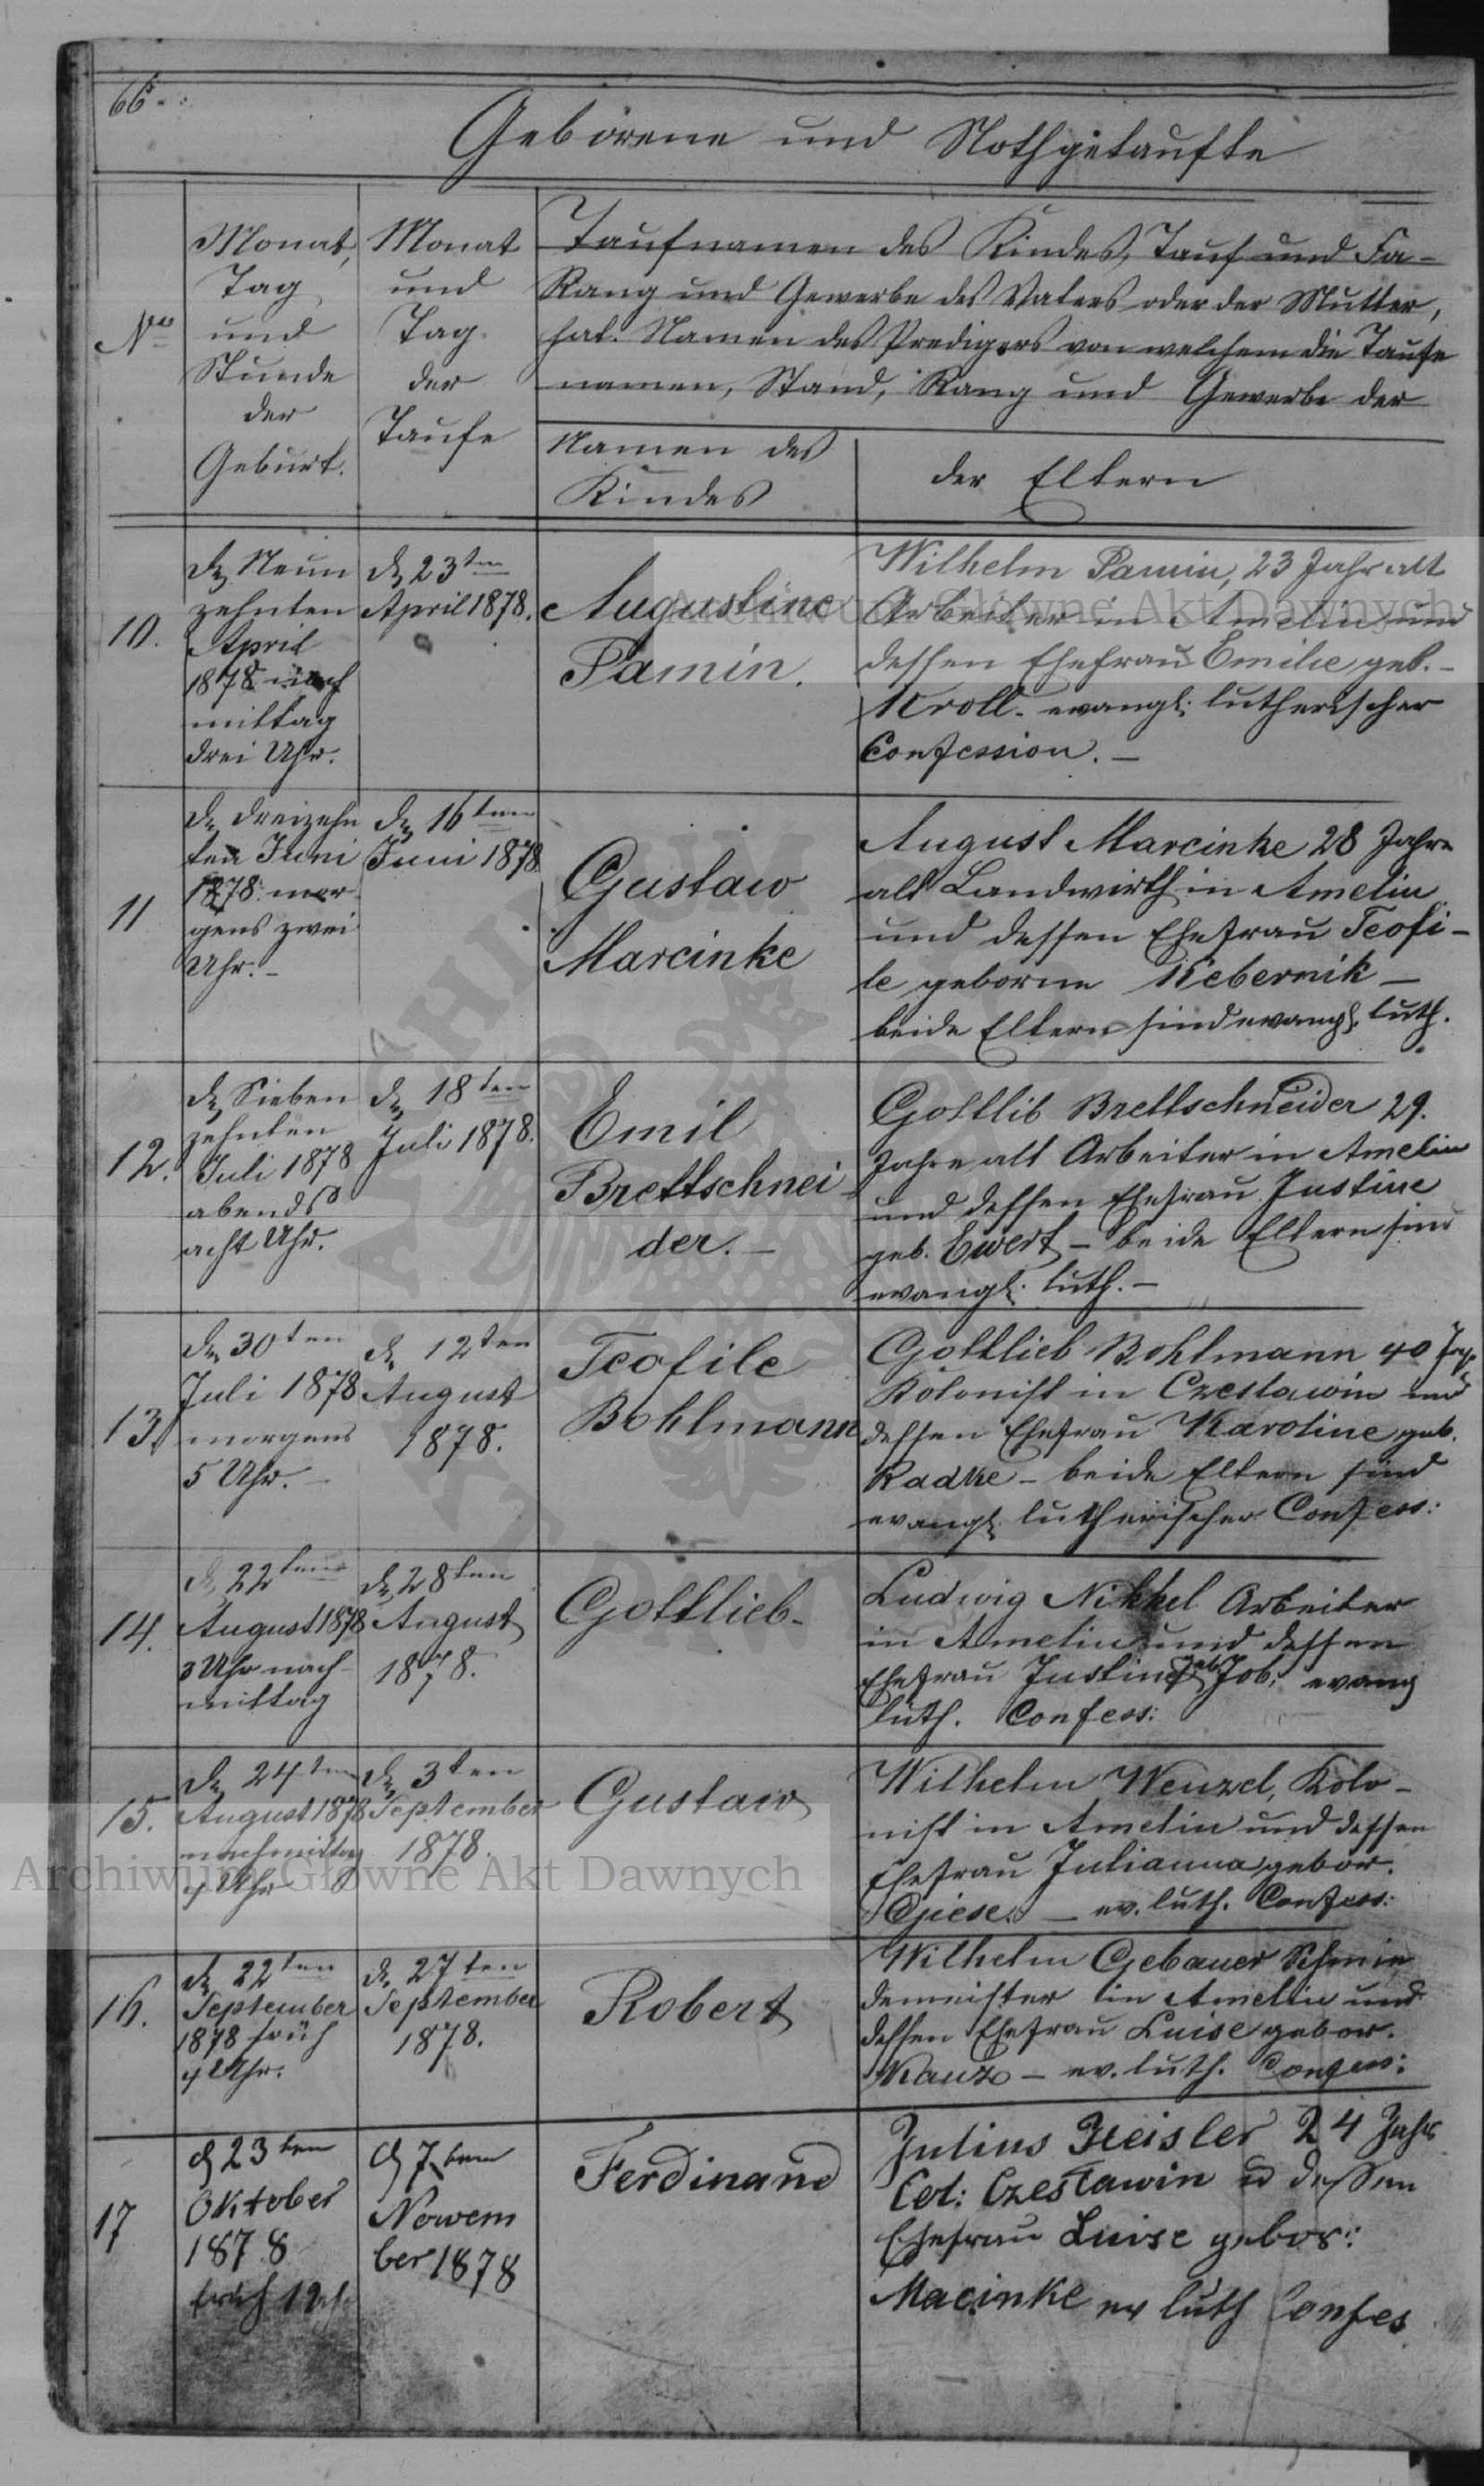 66.
Geborene und Nothgetaufte
No
Monat,
Tag
und
Stunde
der
Geburt.
Monat
und
Tag
der
Taufe
Taufnamen des Kindes, Tauf und Fa-
Rang und Gewerbe des Vaters oder der Mutter,
hat. Namen des Predigers von welchem die Taufe
namen, Stand, Rang und Gewerbe der
Namen des
Kindes
der Eltern
10.
Neun
zehnten
April
1878 nach
mittag
drei Uhr.
23ten
April 1878.
Augustine
Pamin.
Wilhelm Pamin, 23 Jahr alt
Arbeiter in Amelin und
dessen Ehefrau Emilie geb.-
Kroll. evangl: lutherischer
Confession. -
11
dreizehn
ten Juni
1878. mor
gens zwei
Uhr. -
16ten
Juni 1878
Gustaw
Marcinke
August Marcinke 28 Jahre
alt Landwirth in Amelin
und dessen Ehefrau Teofi-
le geborne Kebernik -
beide Eltern sind evangl. luth.
12.
Sieben
zehnten
Juli 1878
abends
acht Uhr.
18ten
Juli 1878.
Emil
Brettschnei
der. -
Gottlib Brettschneider 29.
Jahre alt Arbeiter in Amelin
und dessen Ehefrau Justine
geb. Ewert - beide Eltern sind
evangl: luth. -
13.
30ten
Juli 1878
morgens
5 Uhr. -
12ten
August
1878.
Teofile
Bohlmann
Gottlieb Bohlmann 40 Jah
Kolonist in Czeslawin und
dessen Ehefrau Karoline geb.
Radke - beide Eltern sind
evangl. lutherischer Confess:
14.
22ten
August 1878
3 Uhr nach-
mittag
28ten
August
1878.
Gottlieb-
Ludwig Nikkel Arbeiter
in Amelin und dessen
Ehefrau Justine geb. Job: evang
luth. Confess:
15.
24ten
August 1878
nachmittag
4 Uhr
3ten
September
1878.
Gustaw
Wilhelm Wenzel, Kolo-
nist in Amelin und dessen
Ehefrau Julianna gebor.
Giese. - ev. luth. Confess:
16.
22ten
September
1878 früh
4 Uhr.
27ten
September
1878.
Robert
Wilhelm Gebauer Schmie
demeister in Amelin und
dessen Ehefrau Luise gebor.
Kanz - ev. luth. Confess:
17
23ten
Oktober
1878
früh
7ten
Nowem
ber 1878
Ferdinand
Julius 24 Jahr
Col: Czeslawin u dessen
Ehefrau Luise gebor:
Macinke ev luth Confes
Archiwum Główne Akt Dawnych
Archiwum Główne Akt Dawnych